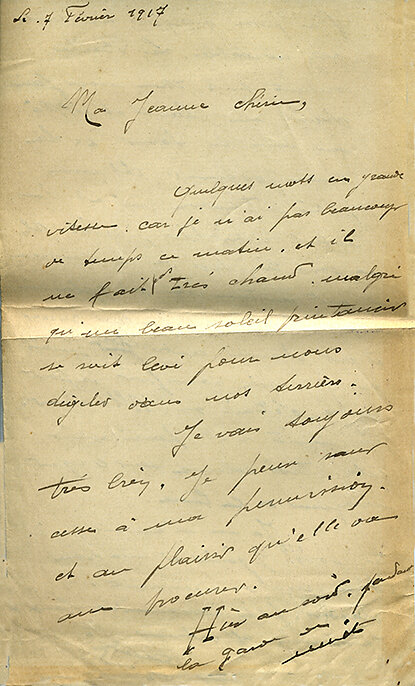 Le 7 Février 1917
Ma Jeanne chérie,
Quelques mots en grande
vitesse, car je n'ai pas beaucoup
de temps ce matin, et il
ne fait pas très chaud, malgré
qu'un beau soleil printanier
se soit levé pour nous
dégeler dans nos terriers.
Je vais toujours
très bien, je pense sans
cesse à ma permission,
et au plaisir qu'elle va
me procurer.
Hier au soir, pendant
la garde de nuit